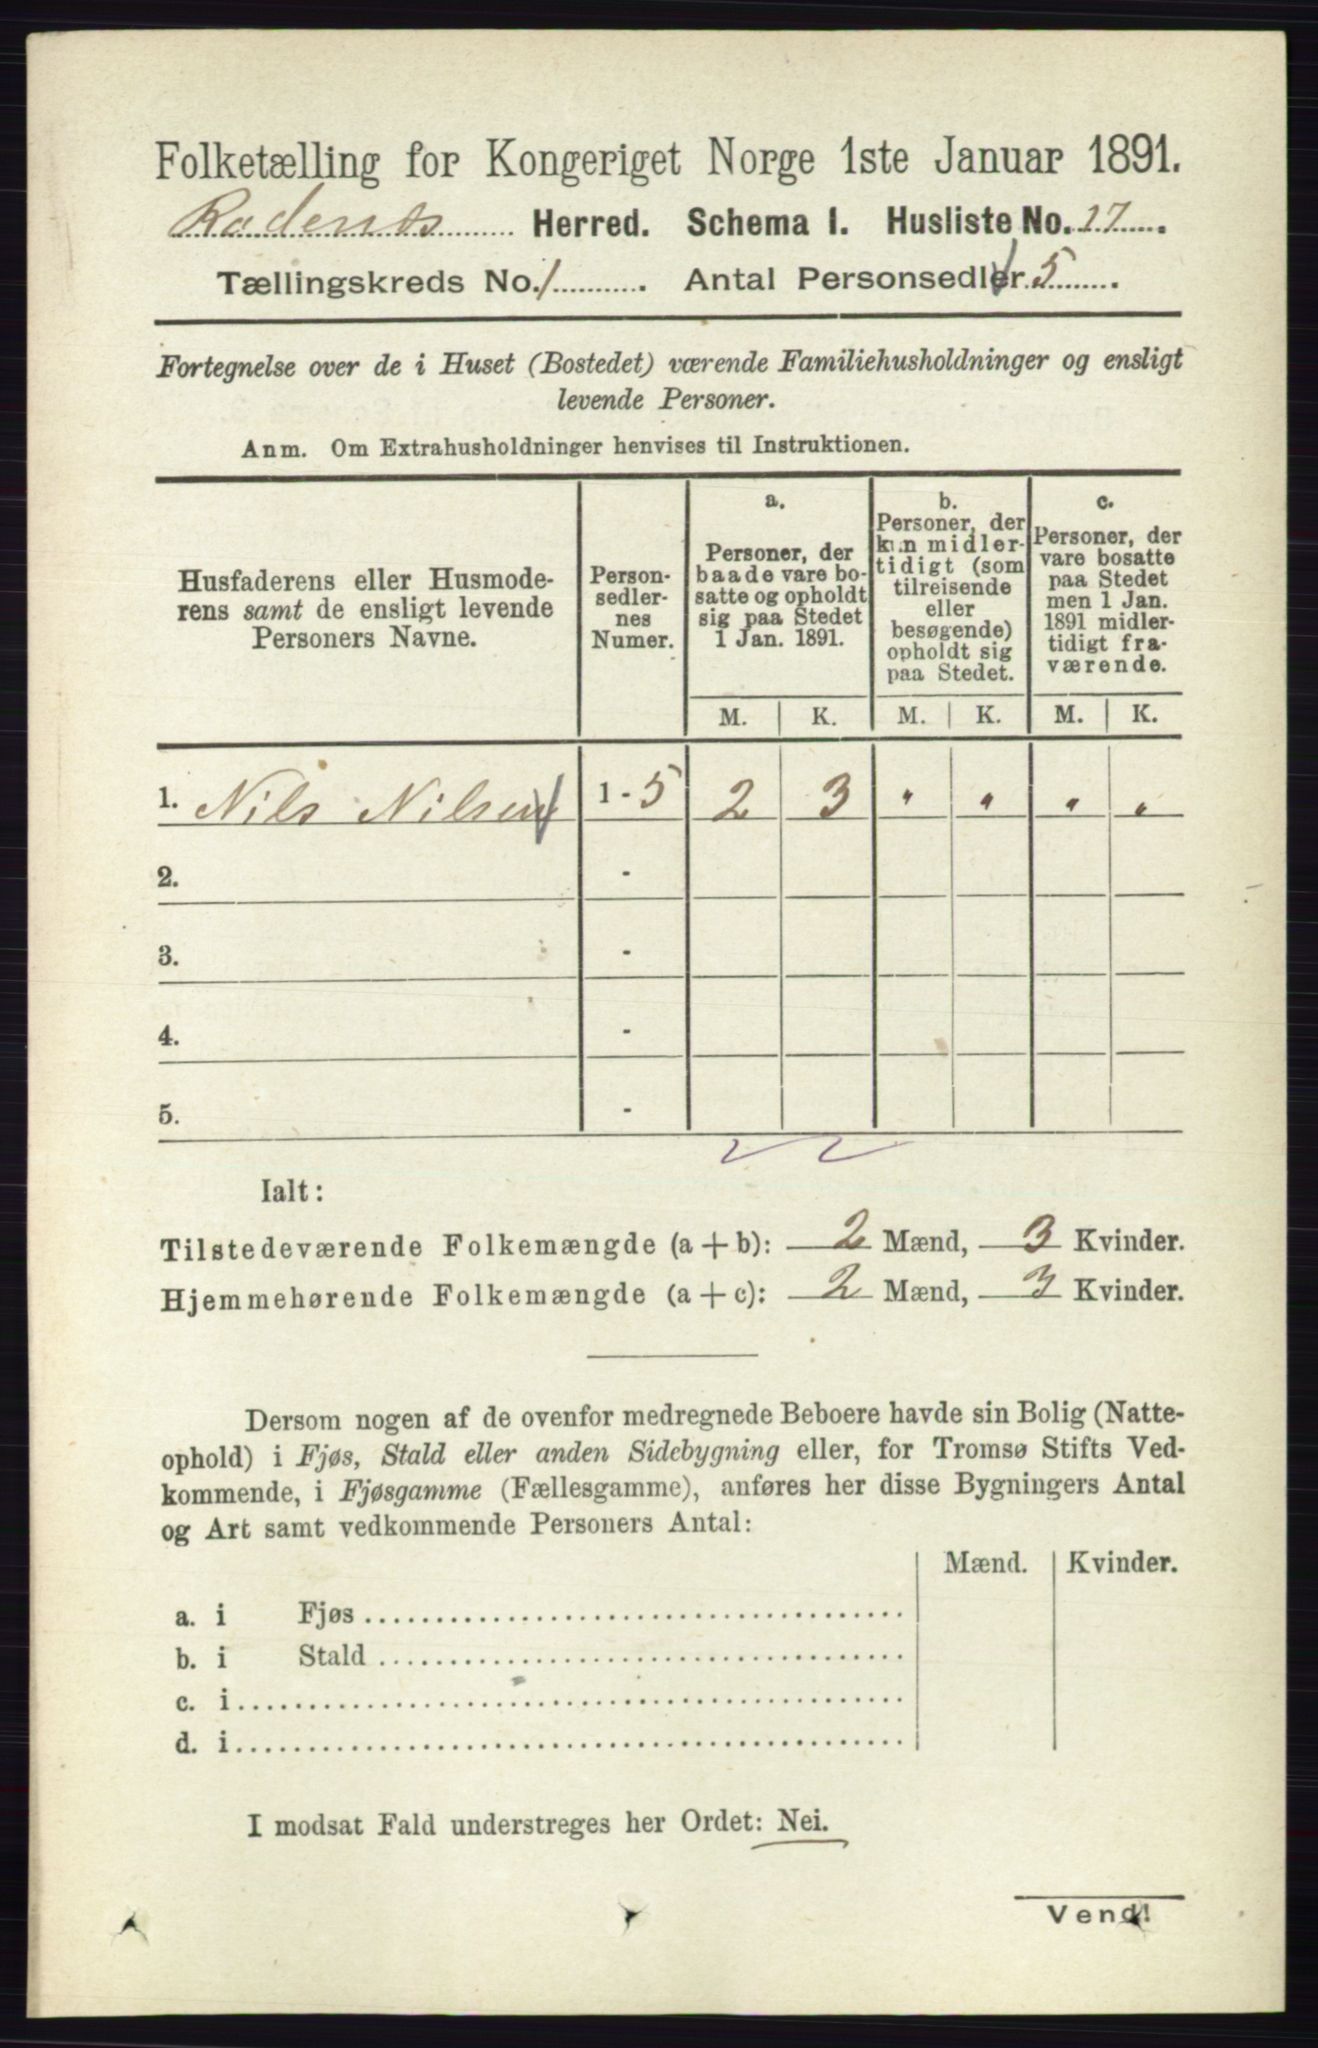 Folketælling for Kongeriget Norge 1ste Januar 1891.
Rødenæs Herred. Schema I. Husliste No. 17.
Tællingskreds No. 1. Antal Personsedler 5.
Fortegnelse over de i Huset (Bostedet) værende Familiehusholdninger og ensligt
levende Personer.
Anm. Om Extrahusholdninger henvises til Instruktionen.
Husfaderens eller Husmode-
rens samt de ensligt levende
Personers Navne.
Person-
sedler-
nes
Numer.
a.
Personer, der
baade vare bo-
satte og opholdt
sig paa Stedet
1 Jan. 1891.
b.
Personer, der
kun midler-
tidigt (som
tilreisende
eller
besøgende)
opholdt sig
paa Stedet.
c.
Personer, der
vare bosatte
paa Stedet
men 1 Jan.
1891 midler-
tidigt fra-
værende.
M. K. M. K. M. K.
1. Nils Nilsen 1 - 5 2 3 " " " "
2. -
3. -
4. -
5. -
Ialt:
Tilstedeværende Folkemængde (a + b): 2 Mænd, 3 Kvinder.
Hjemmehørende Folkemængde (a + c): 2 Mænd, 3 Kvinder.
Dersom nogen af de ovenfor medregnede Beboere havde sin Bolig (Natte-
ophold) i Fjøs, Stald eller anden Sidebygning eller, for Tromsø Stifts Ved-
kommende, i Fjøsgamme (Fællesgamme), anføres her disse Bygningers Antal
og Art samt vedkommende Personers Antal:
Mænd. Kvinder.
a. i Fjøs
b. i Stald
c. i
d. i
I modsat Fald understreges her Ordet: Nei.
Vend!